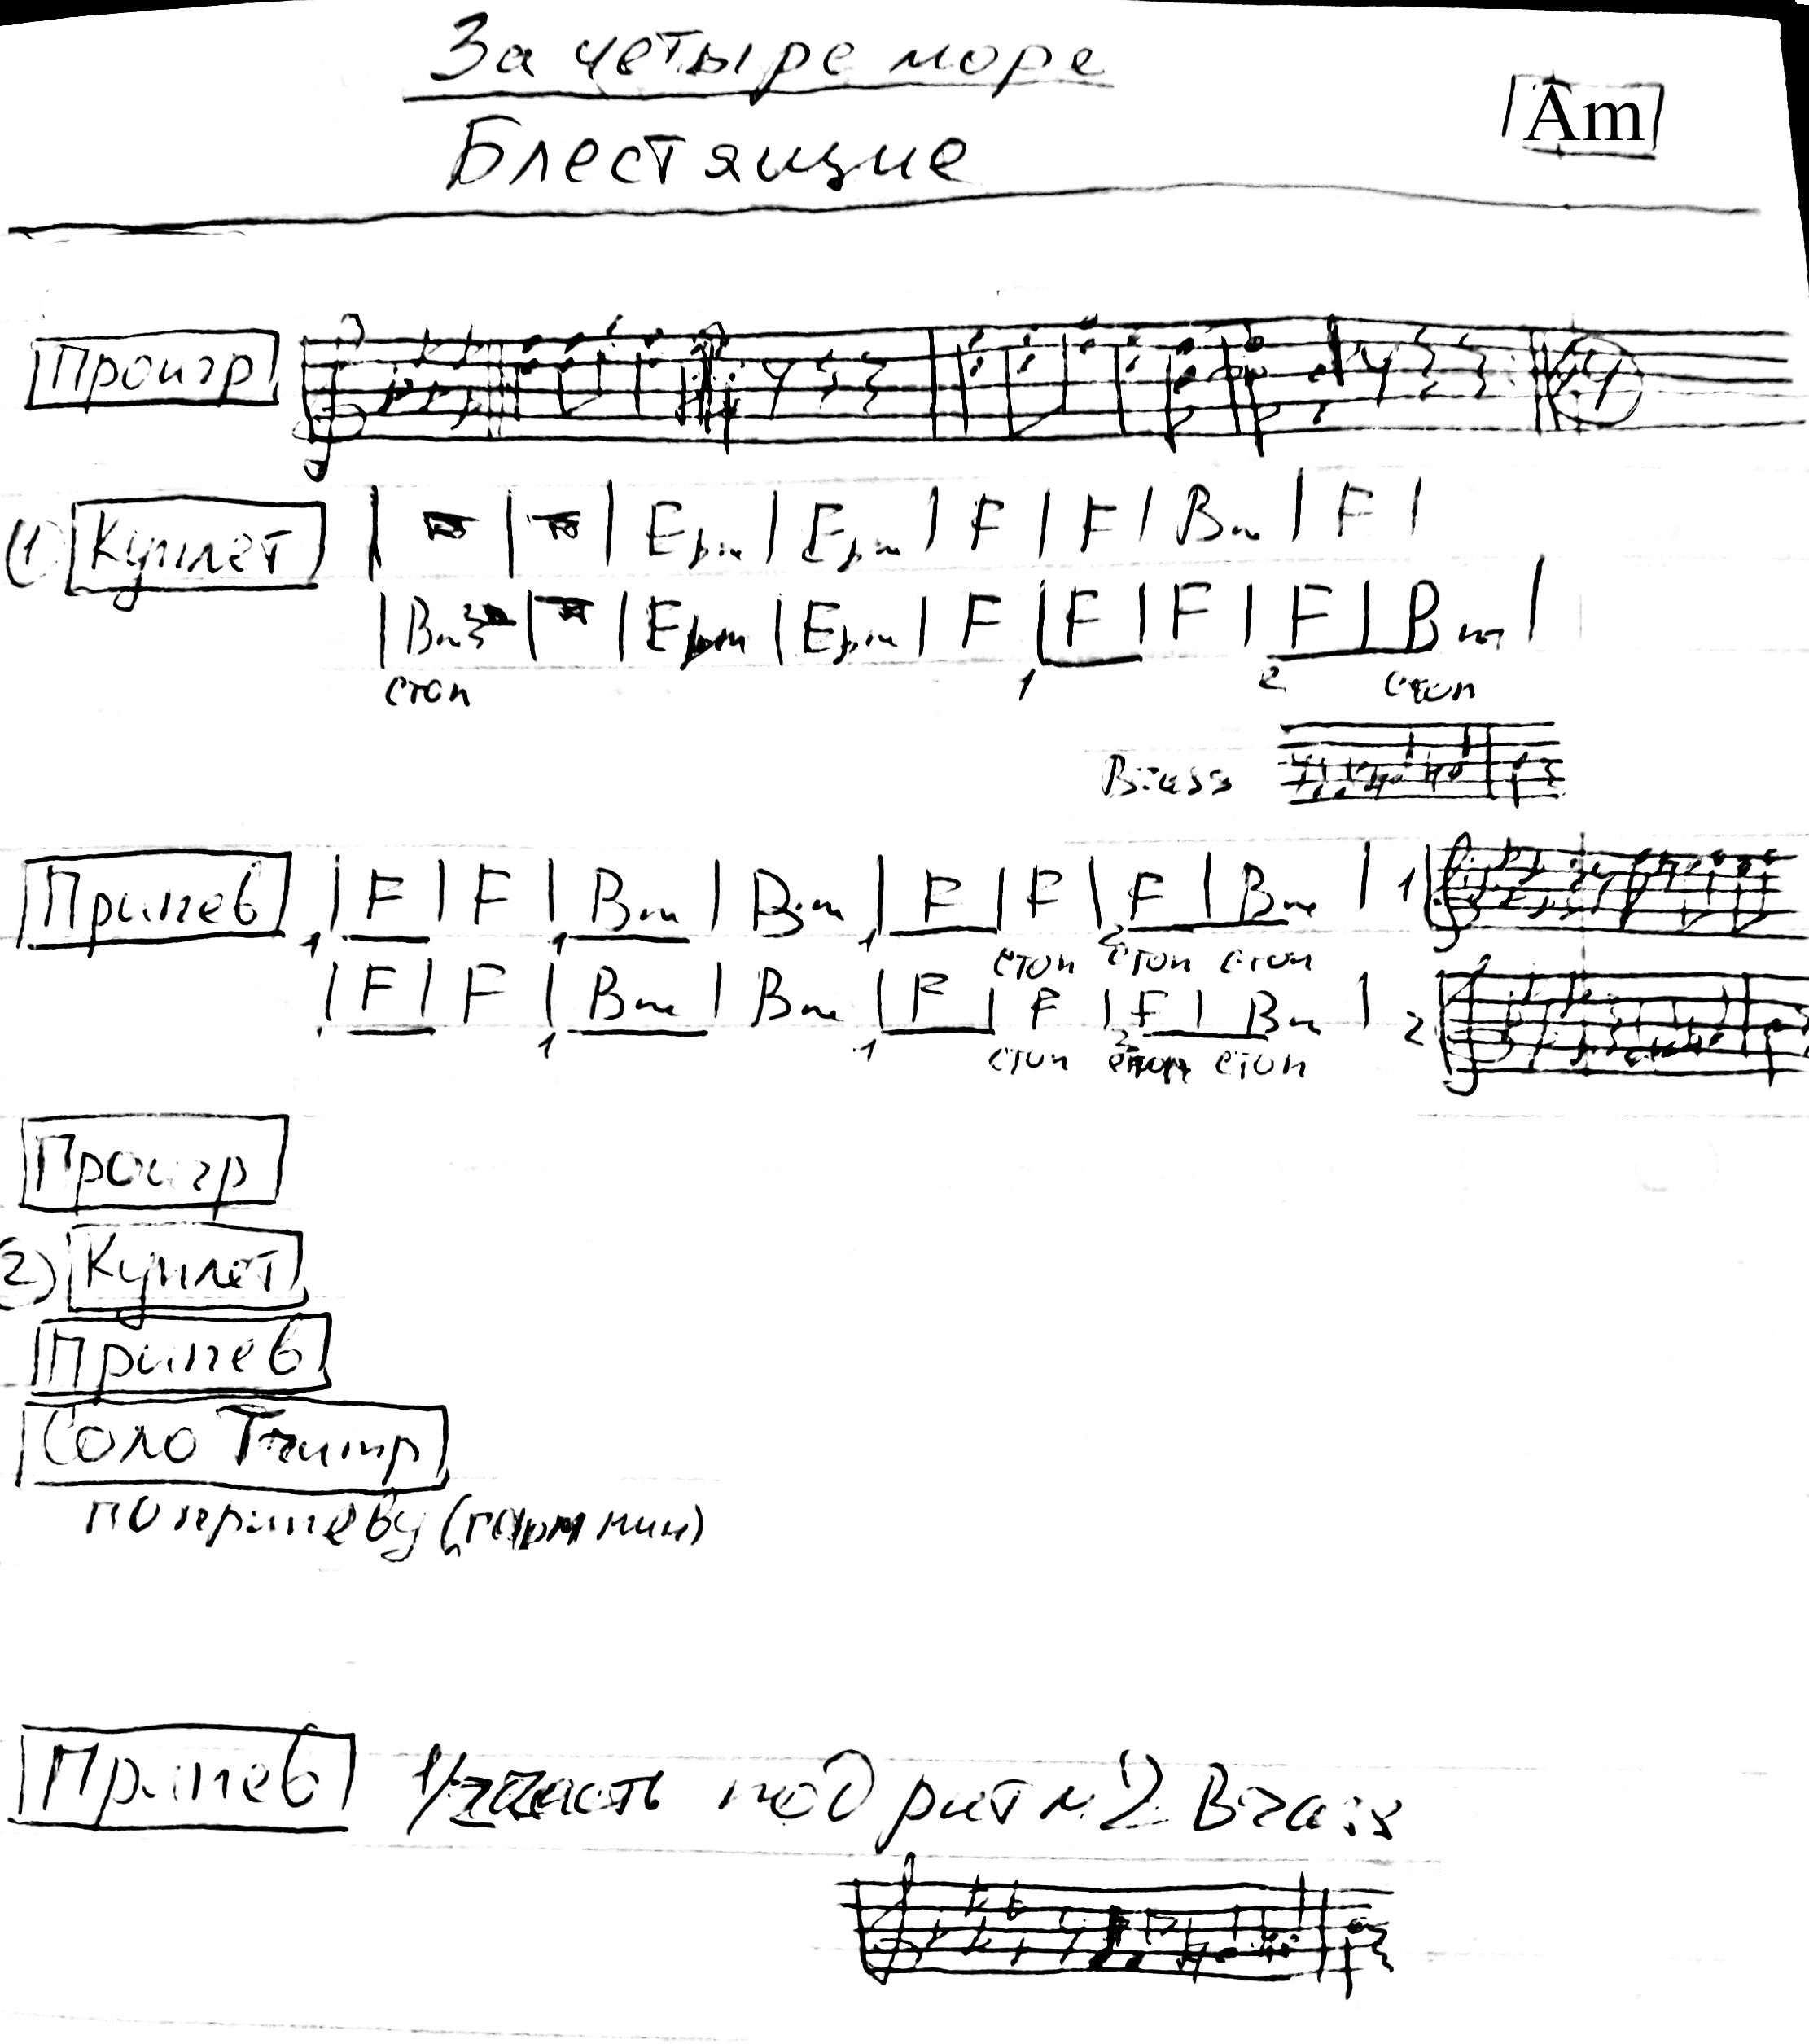 За четыре море
Am
Блестящие
Проигр
1) Куплет | | | Ebm | Ebm | F | F | Bm | F |
| Bm | | Ebm | Ebm | F | F | F | F | Bm |
стоп 1 2 стоп
Brass
Припев | F | F | Bm | Bm | F | F | F | Bm | 1
1 1 1 стоп 2 стоп стоп
| F | F | Bm | Bm | F | F | F | Bm | 2
1 1 стоп 2 стоп стоп
Проигр
2) Куплет
Припев
Соло Trump
по припеву
Припев 1/2 часть под ритм 2 Brass